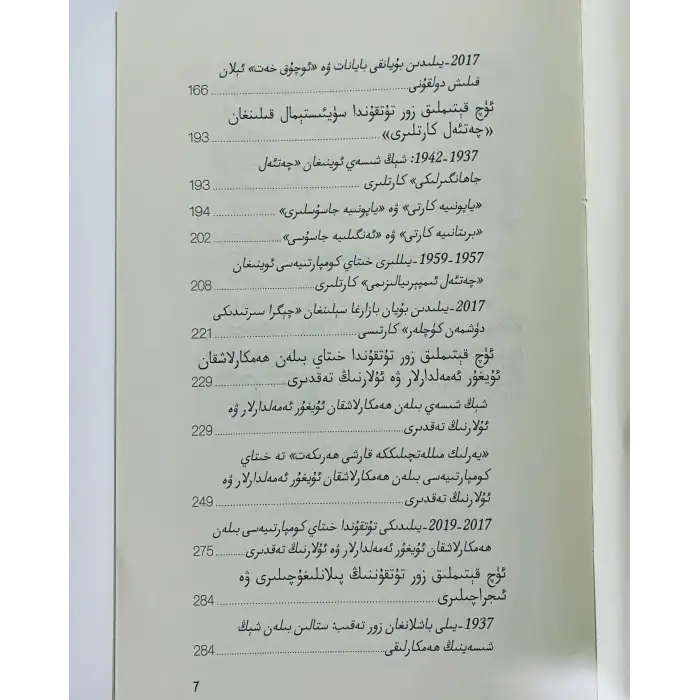 2017-يىلىدىن بۇيانقى بايانات ۋە «ئوچۇق خەت» ئېلان
قىلىش دولقۇنى.......................................................166
ئۈچ قېتىملىق زور تۇتقۇندا سۇيئىستېمال قىلىنغان
«چەتئەل كارتلىرى»..................................................193
1937-1942: شېڭ شىسەي ئوينىغان «چەتئەل
جاھانگىرلىكى» كارتلىرى ........................................193
«ياپونىيە كارتى» ۋە «ياپونىيە جاسۇسلىرى»....................194
«برىتانىيە كارتى» ۋە «ئەنگىلىيە جاسۇسى»....................202
1957-1959-يىللىرى خىتاي كومپارتىيەسى ئوينىغان
«چەتئەل ئىمپېرىيالىزىمى» كارتلىرى............................208
2017-يىلىدىن بۇيان بازارغا سېلىنغان «چېگرا سىرتىدىكى
دۈشمەن كۈچلەر» كارتىسى........................................221
ئۈچ قېتىملىق زور تۇتقۇندا خىتاي بىلەن ھەمكارلاشقان
ئۇيغۇر ئەمەلدارلار ۋە ئۇلارنىڭ تەقدىرى.........................229
شېڭ شىسەي بىلەن ھەمكارلاشقان ئۇيغۇر ئەمەلدارلار ۋە
ئۇلارنىڭ تەقدىرى....................................................229
«يەرلىك مىللەتچىلىككە قارشى ھەرىكەت» تە خىتاي
كومپارتىيەسى بىلەن ھەمكارلاشقان ئۇيغۇر ئەمەلدارلار ۋە
ئۇلارنىڭ تەقدىرى....................................................249
2017-2019-يىلىدىكى تۇتقۇندا خىتاي كومپارتىيەسى بىلەن
ھەمكارلاشقان ئۇيغۇر ئەمەلدارلار ۋە ئۇلارنىڭ تەقدىرى..........275
ئۈچ قېتىملىق زور تۇتقۇننىڭ پىلانلىغۇچىلىرى ۋە
ئىجراچىلىرى..........................................................284
1937-يىلى باشلانغان زور تەقىب: ستالىن بىلەن شېڭ
شىسەينىڭ ھەمكارلىقى.............................................284
7